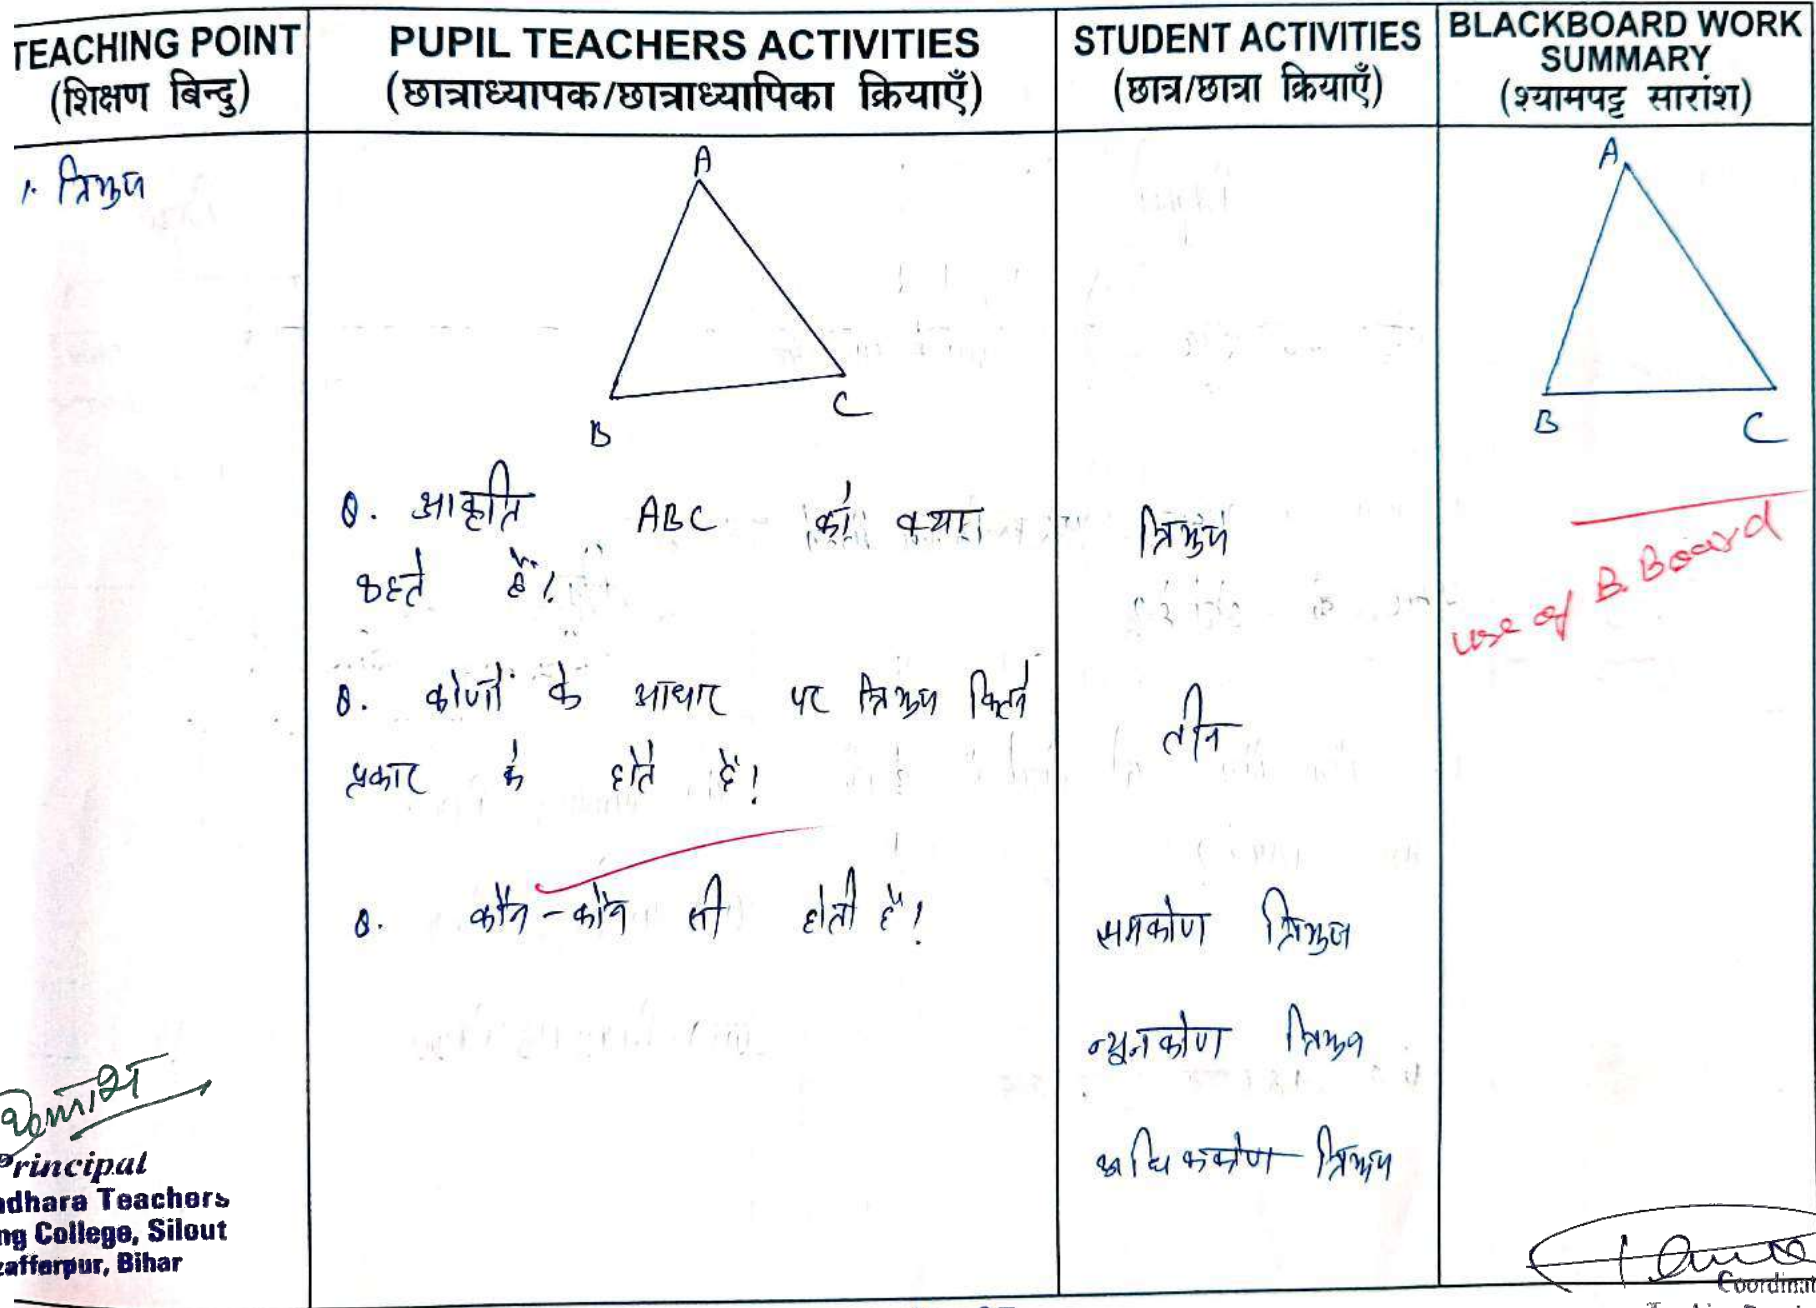 TEACHING POINT
(शिक्षण बिन्दु)
PUPIL TEACHERS ACTIVITIES
(छात्राध्यापक/छात्राध्यापिका क्रियाएँ)
STUDENT ACTIVITIES
(छात्र/छात्रा क्रियाएँ)
BLACKBOARD WORK
SUMMARY
(श्यामपट्ट सारांश)
1. त्रिभुज
A
B
C
Q. आकृति ABC को क्या
कहते हैं?
त्रिभुज
Q. कोणों के आधार पर त्रिभुज कितने
प्रकार के होते हैं?
तीन
Q. कौन-कौन सी होती हैं?
समकोण त्रिभुज
न्यूनकोण त्रिभुज
अधिककोण त्रिभुज
A
B
C
use of B. Board
Principal
dhara Teachers
ng College, Silout
zafferpur, Bihar
Coordinat